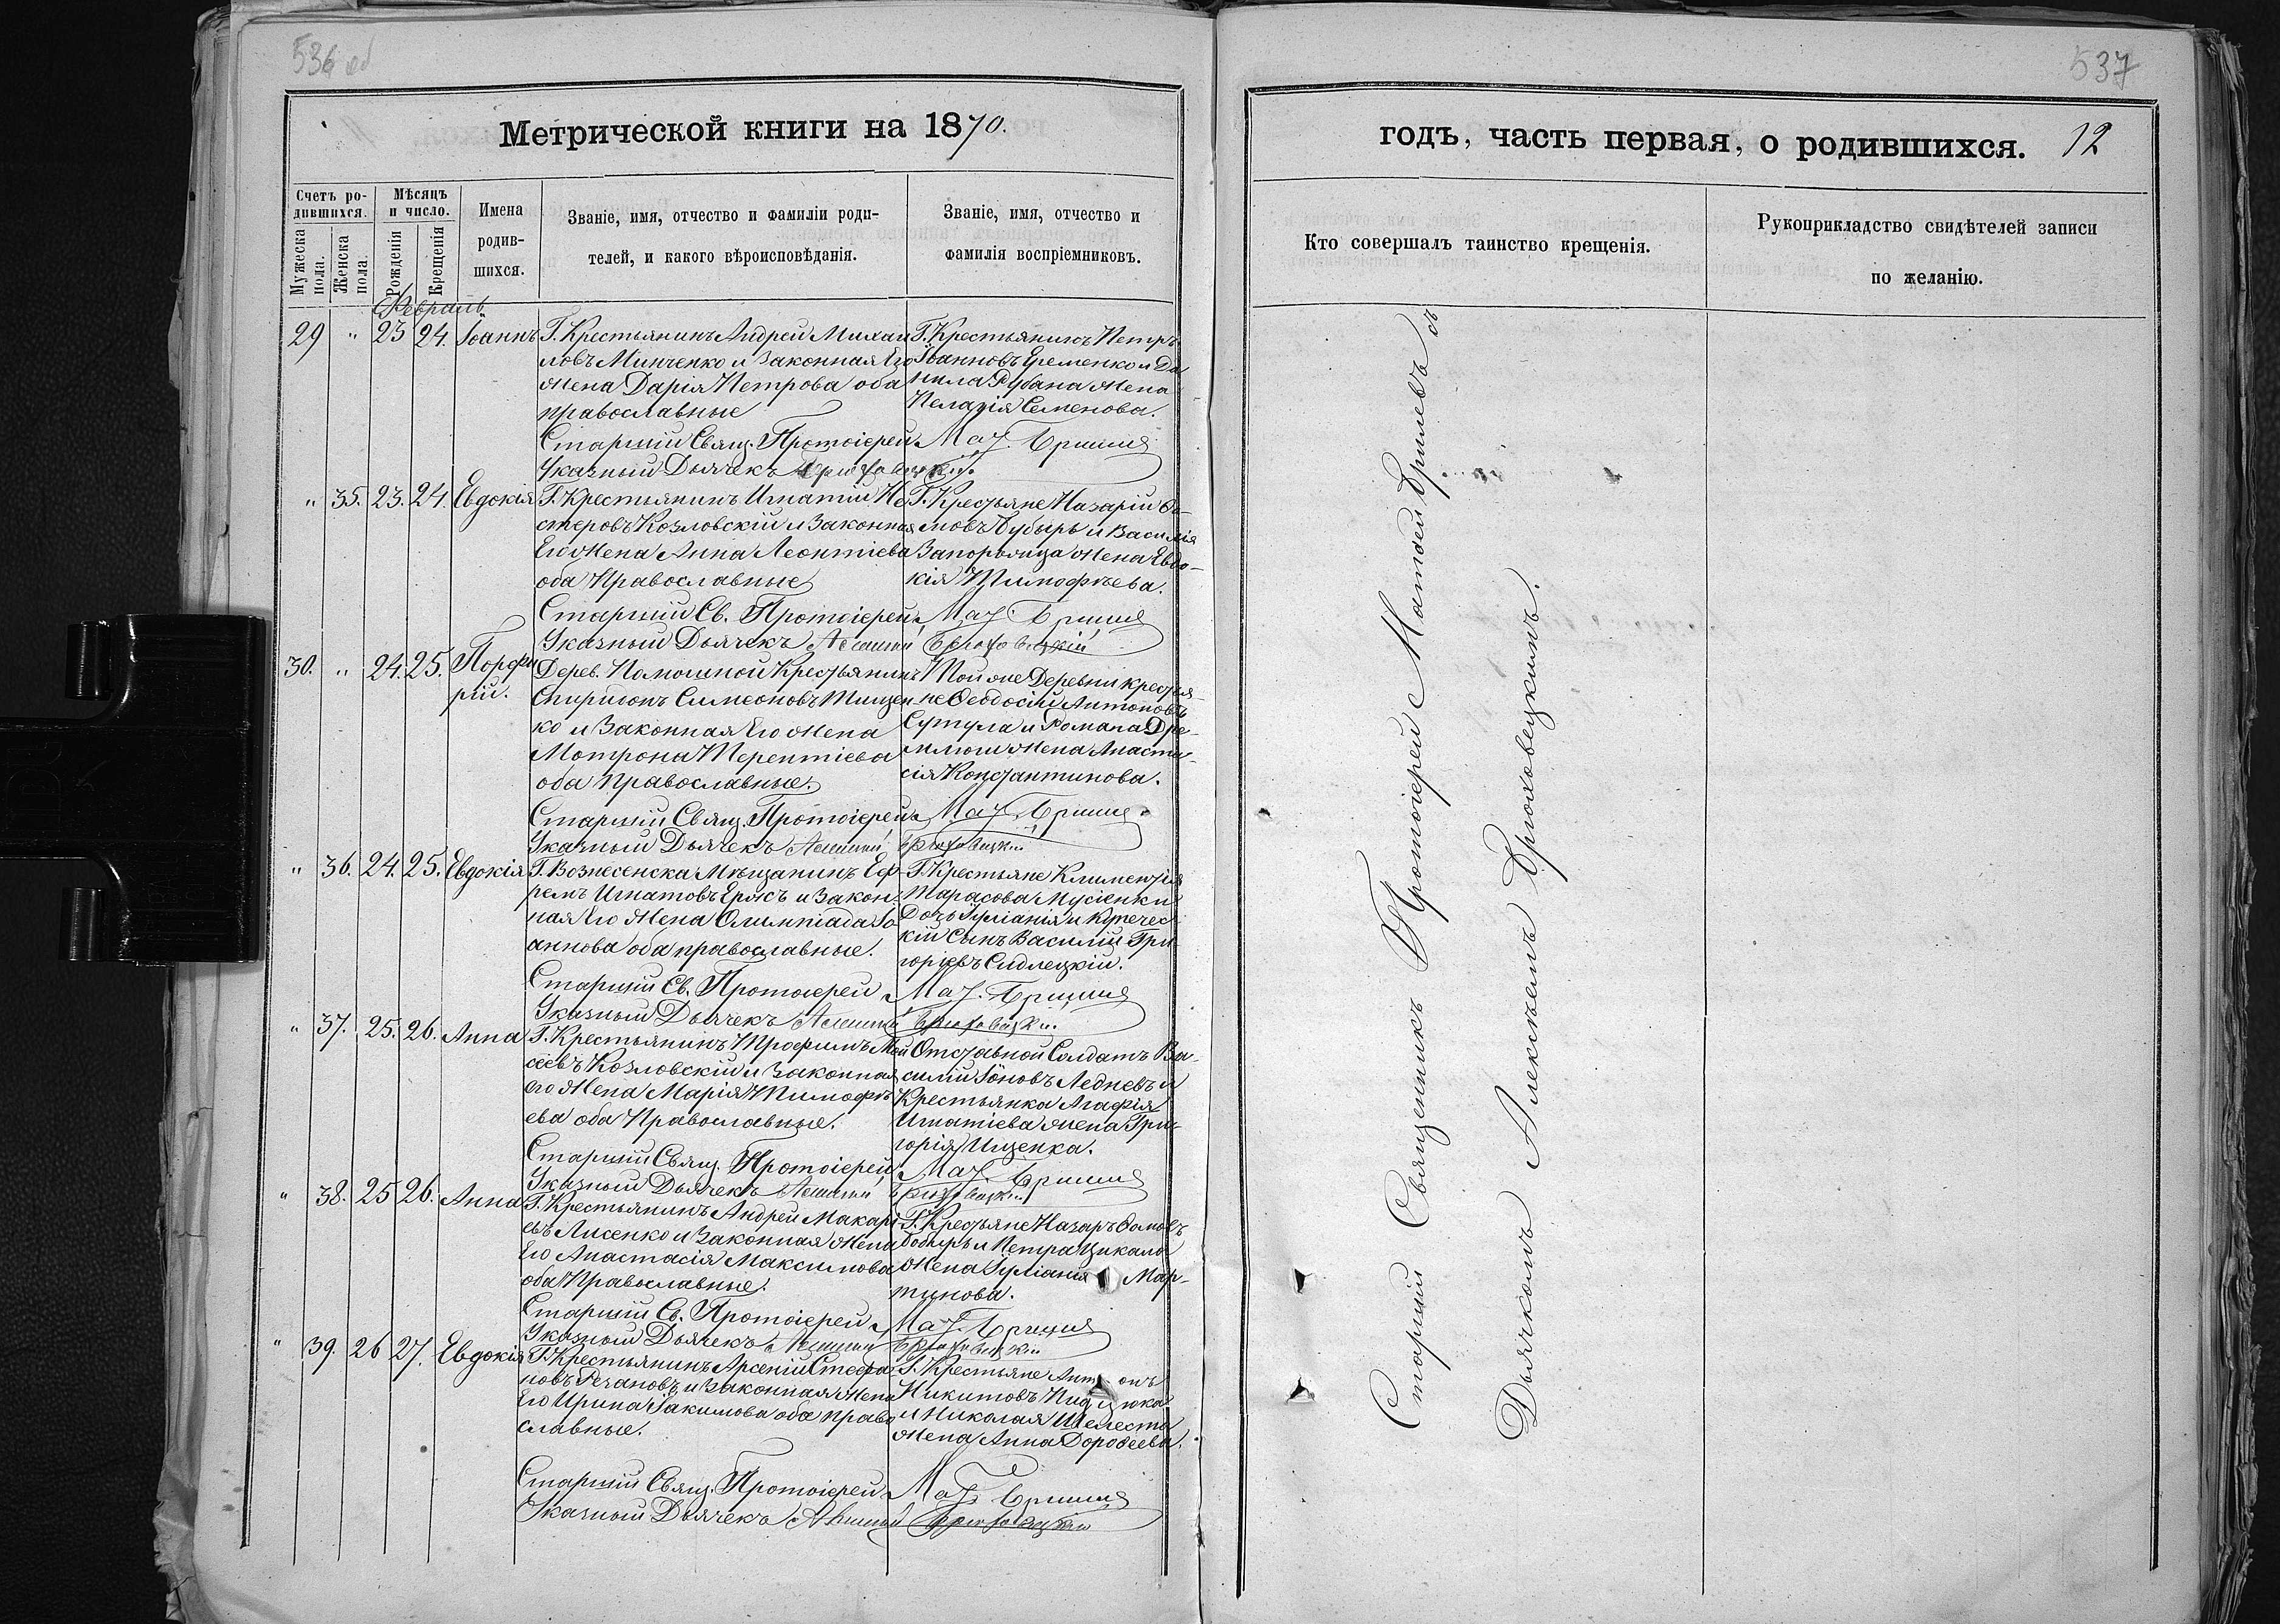 536 об
Метрической книги на 1870.
Счетъ ро-
дившихся.
Мѣсяцъ
и число.
Имена
родив-
шихся.
Званіе, имя, отчество и фамиліи роди-
телей, и какого вѣроисповѣданія.
Званіе, имя, отчество и
фамилія воспріемниковъ.
Мужеска
пола.
Женска
пола.
Рожденія
Крещенія
Февраль
29 " 23 24. Іоаннъ
Г. Крестьянинъ Андрей Михаи
ловъ Минченко и Законная Его
Жена Дарія Петрова оба
православные
Г. Крестьянинъ Петръ
Іоанновъ Еременко и Да
нила Рубана Жена
Пелагія Семенова.
Старшій Свящ. Протоіерей Мат.
Указный Дьячекъ
" 35. 23. 24. Евдокія
Г. Крестьянинъ Игнатій Не
стеровъ Козловскій и Законная
Его Жена Анна Леонтіева
оба Православные
Г. Крестьяне Назарій Ѳо-
мовъ Бубырь и Василія
Запорожца Жена Евдо-
кія Тимофѣева.
Старшій Св. Протоіерей Мат.
Указный Дьячекъ Алексій Брюховецкій
30. " 24. 25. Порфи
рій.
Дерев. Помошной Крестьянинъ
Спиридонъ Симеоновъ Тищен
ко и Законная Его Жена
Мотрона Терентіева
оба Православные.
Той же Деревни крестья
не Ѳеодосій Антоновъ
Сутула и Романа Дре-
млюги Жена Анаста-
сія Константинова.
Старшій Свящ. Протоіерей Мат.
Указный Дьячекъ Алексій Брюховецкій
" 36. 24. 25. Евдокія
Г. Вознесенска Мѣщанинъ Еф-
ремъ Игнатовъ и Закон-
ная Его Жена Олимпіада Іо
аннова оба православные.
Г. Крестьяне Климентія
Тарасова Мусіенки
Дочь Іуліанія и Купечес
кій Сынъ Василій Гри
горіевъ Сидлецкій.
Старшій Св. Протоіерей Мат.
Указный Дьячекъ Алексій Брюховецкій
" 37. 25. 26. Анна
Г. Крестьянинъ Трофимъ Мои
сеевъ Козловскій и Законная
его Жена Марія Тимофѣ
ева оба Православные.
Отставной Солдатъ Ва-
силій Іоновъ Ледневъ и
Крестьянка Агафія
Игнатіева жена Гри-
горія Ищенка.
Старшій Свящ. Протоіерей Мат.
Указный Дьячекъ Алексій Брюховецкій
" 38. 25 26. Анна
Г. Крестьянинъ Андрей Макарі
евъ Лисенко и Законная Жена
Его Анастасія Максимова
оба Православные.
Г. Крестьяне Назаръ Ѳомовъ
Бобырь и Петра Цикала
Жена Іуліанія Мар-
тинова.
Старшій Св. Протоіерей Мат.
Указный Дьячекъ Алексій Брюховецкій
" 39. 26 27. Евдокія
Г. Крестьянинъ Арсеній Стефа
новъ Речановъ и Законная Жена
Его Ирина Іакимова оба право
славные.
Г. Крестьяне Антонъ
Никитовъ
и Николая Шелеста
Жена Анна Дороѳеева.
Старшій Свящ. Протоіерей Мат.
Указный Дьячекъ Алексій Брюховецкій
537
годъ, часть первая, о родившихся. 12
Кто совершалъ таинство крещенія.
Рукоприкладство свидѣтелей записи
по желанію.
Старшій Священникъ Протоіерей Матѳей Брилевъ съ
Дьячкомъ Алексѣемъ Брюховецкимъ.